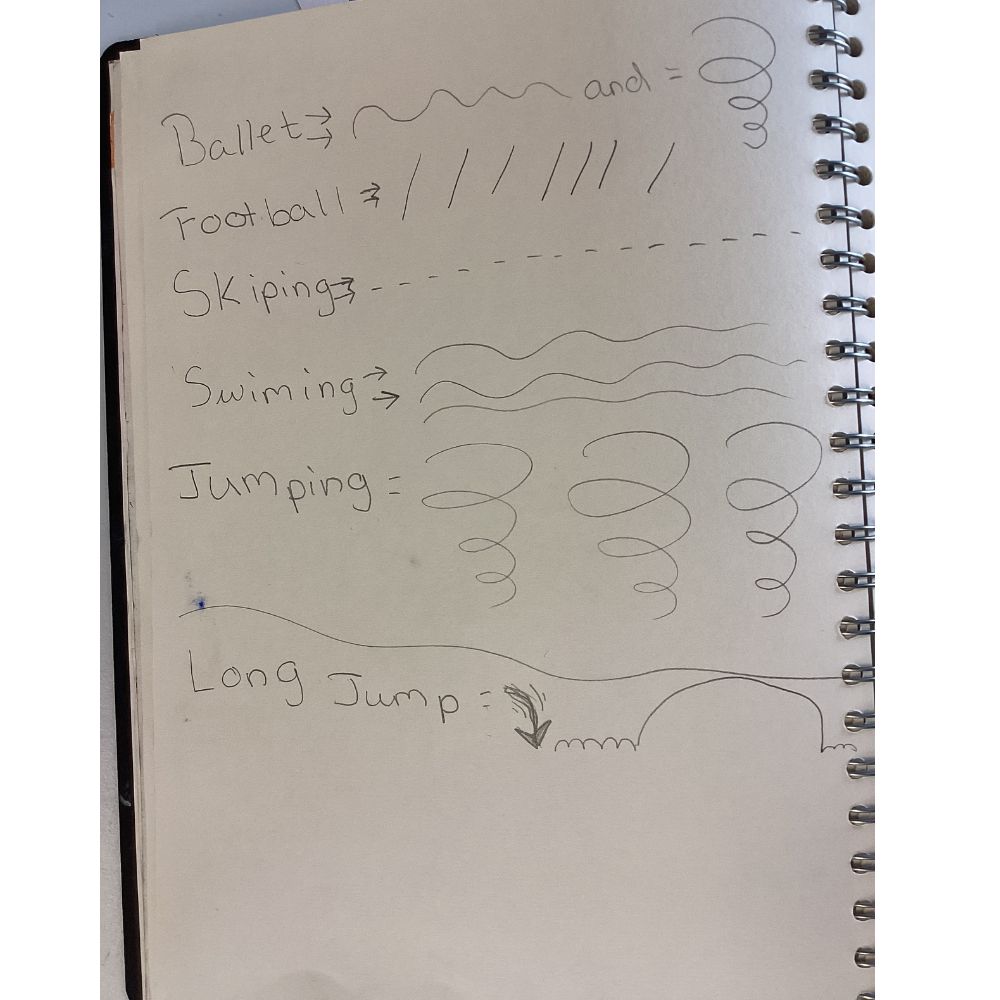 Ballet → and =
Football →
Skiping →
Swiming →
Jumping =
Long Jump =